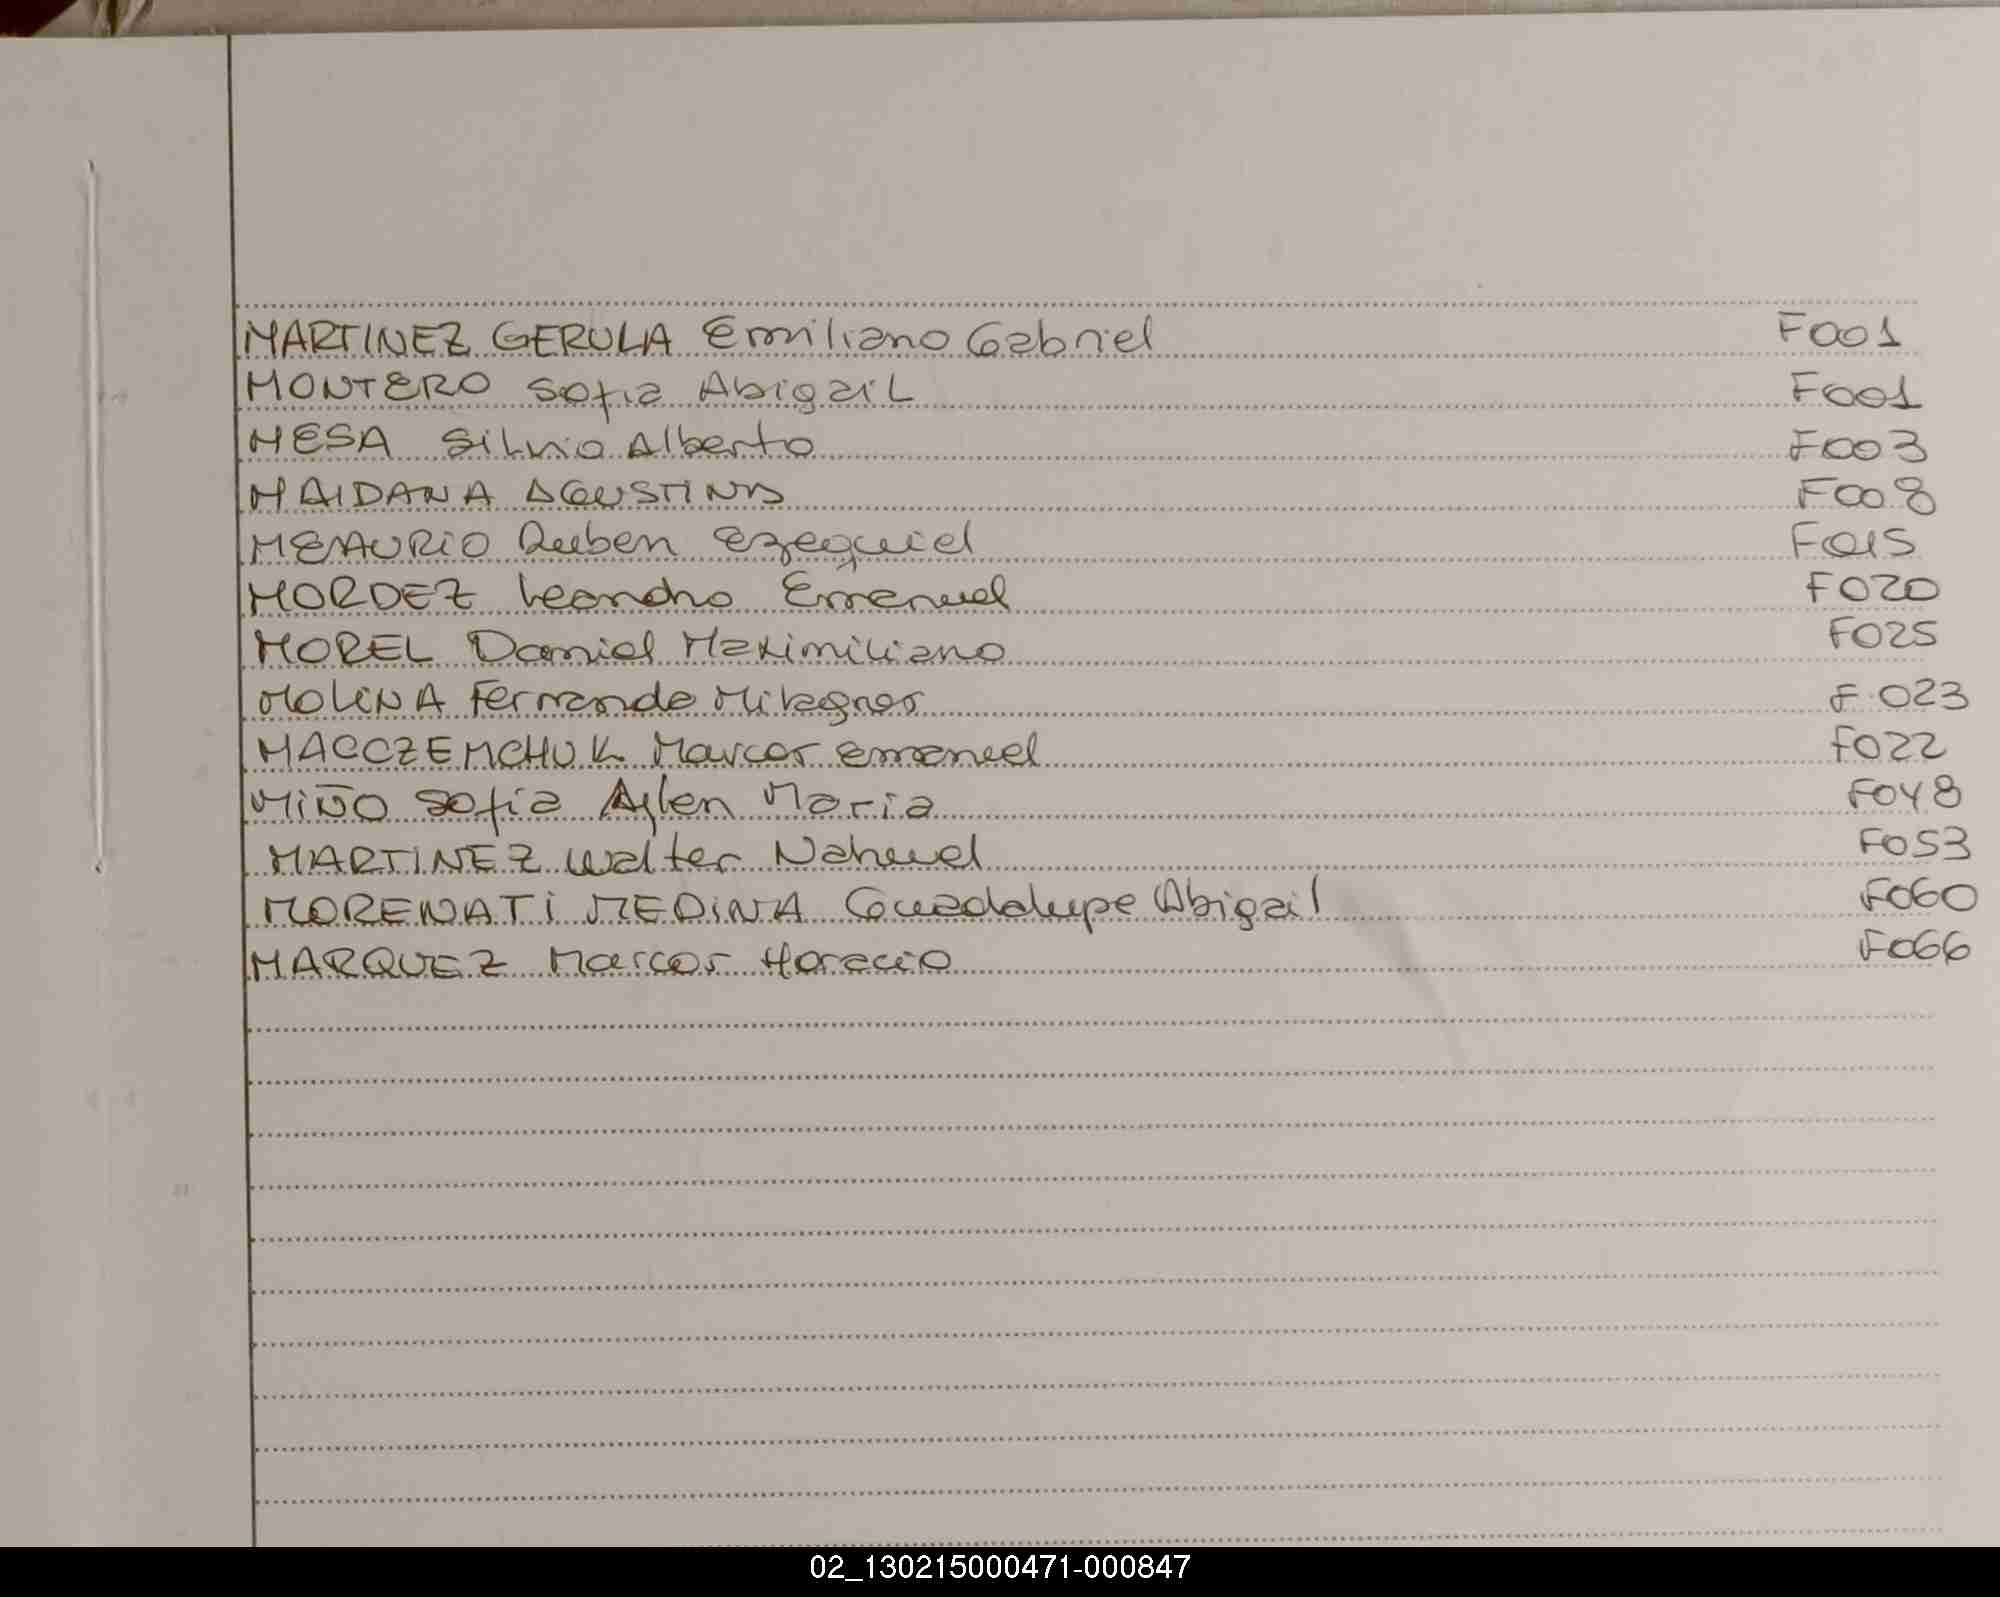 MARTINEZ GERULA Emiliano Gabriel F001
MONTERO Sofia Abigail F001
MESA Silvio Alberto F003
MAIDANA AGUSTINA F008
MEAURIO Ruben Ezequiel F015
MORDEZ Leandro Emanuel F020
MOREL Daniel Maximiliano F025
MOLINA Fernanda Milagros F.023
MACCZEMCHUK Marcos Emanuel F022
MIÑO Sofia Aylen Maria F048
MARTINEZ Walter Nahuel F053
MORENATI MEDINA Guadalupe Abigail F060
MARQUEZ Marcos Horacio F066
02_130215000471-000847